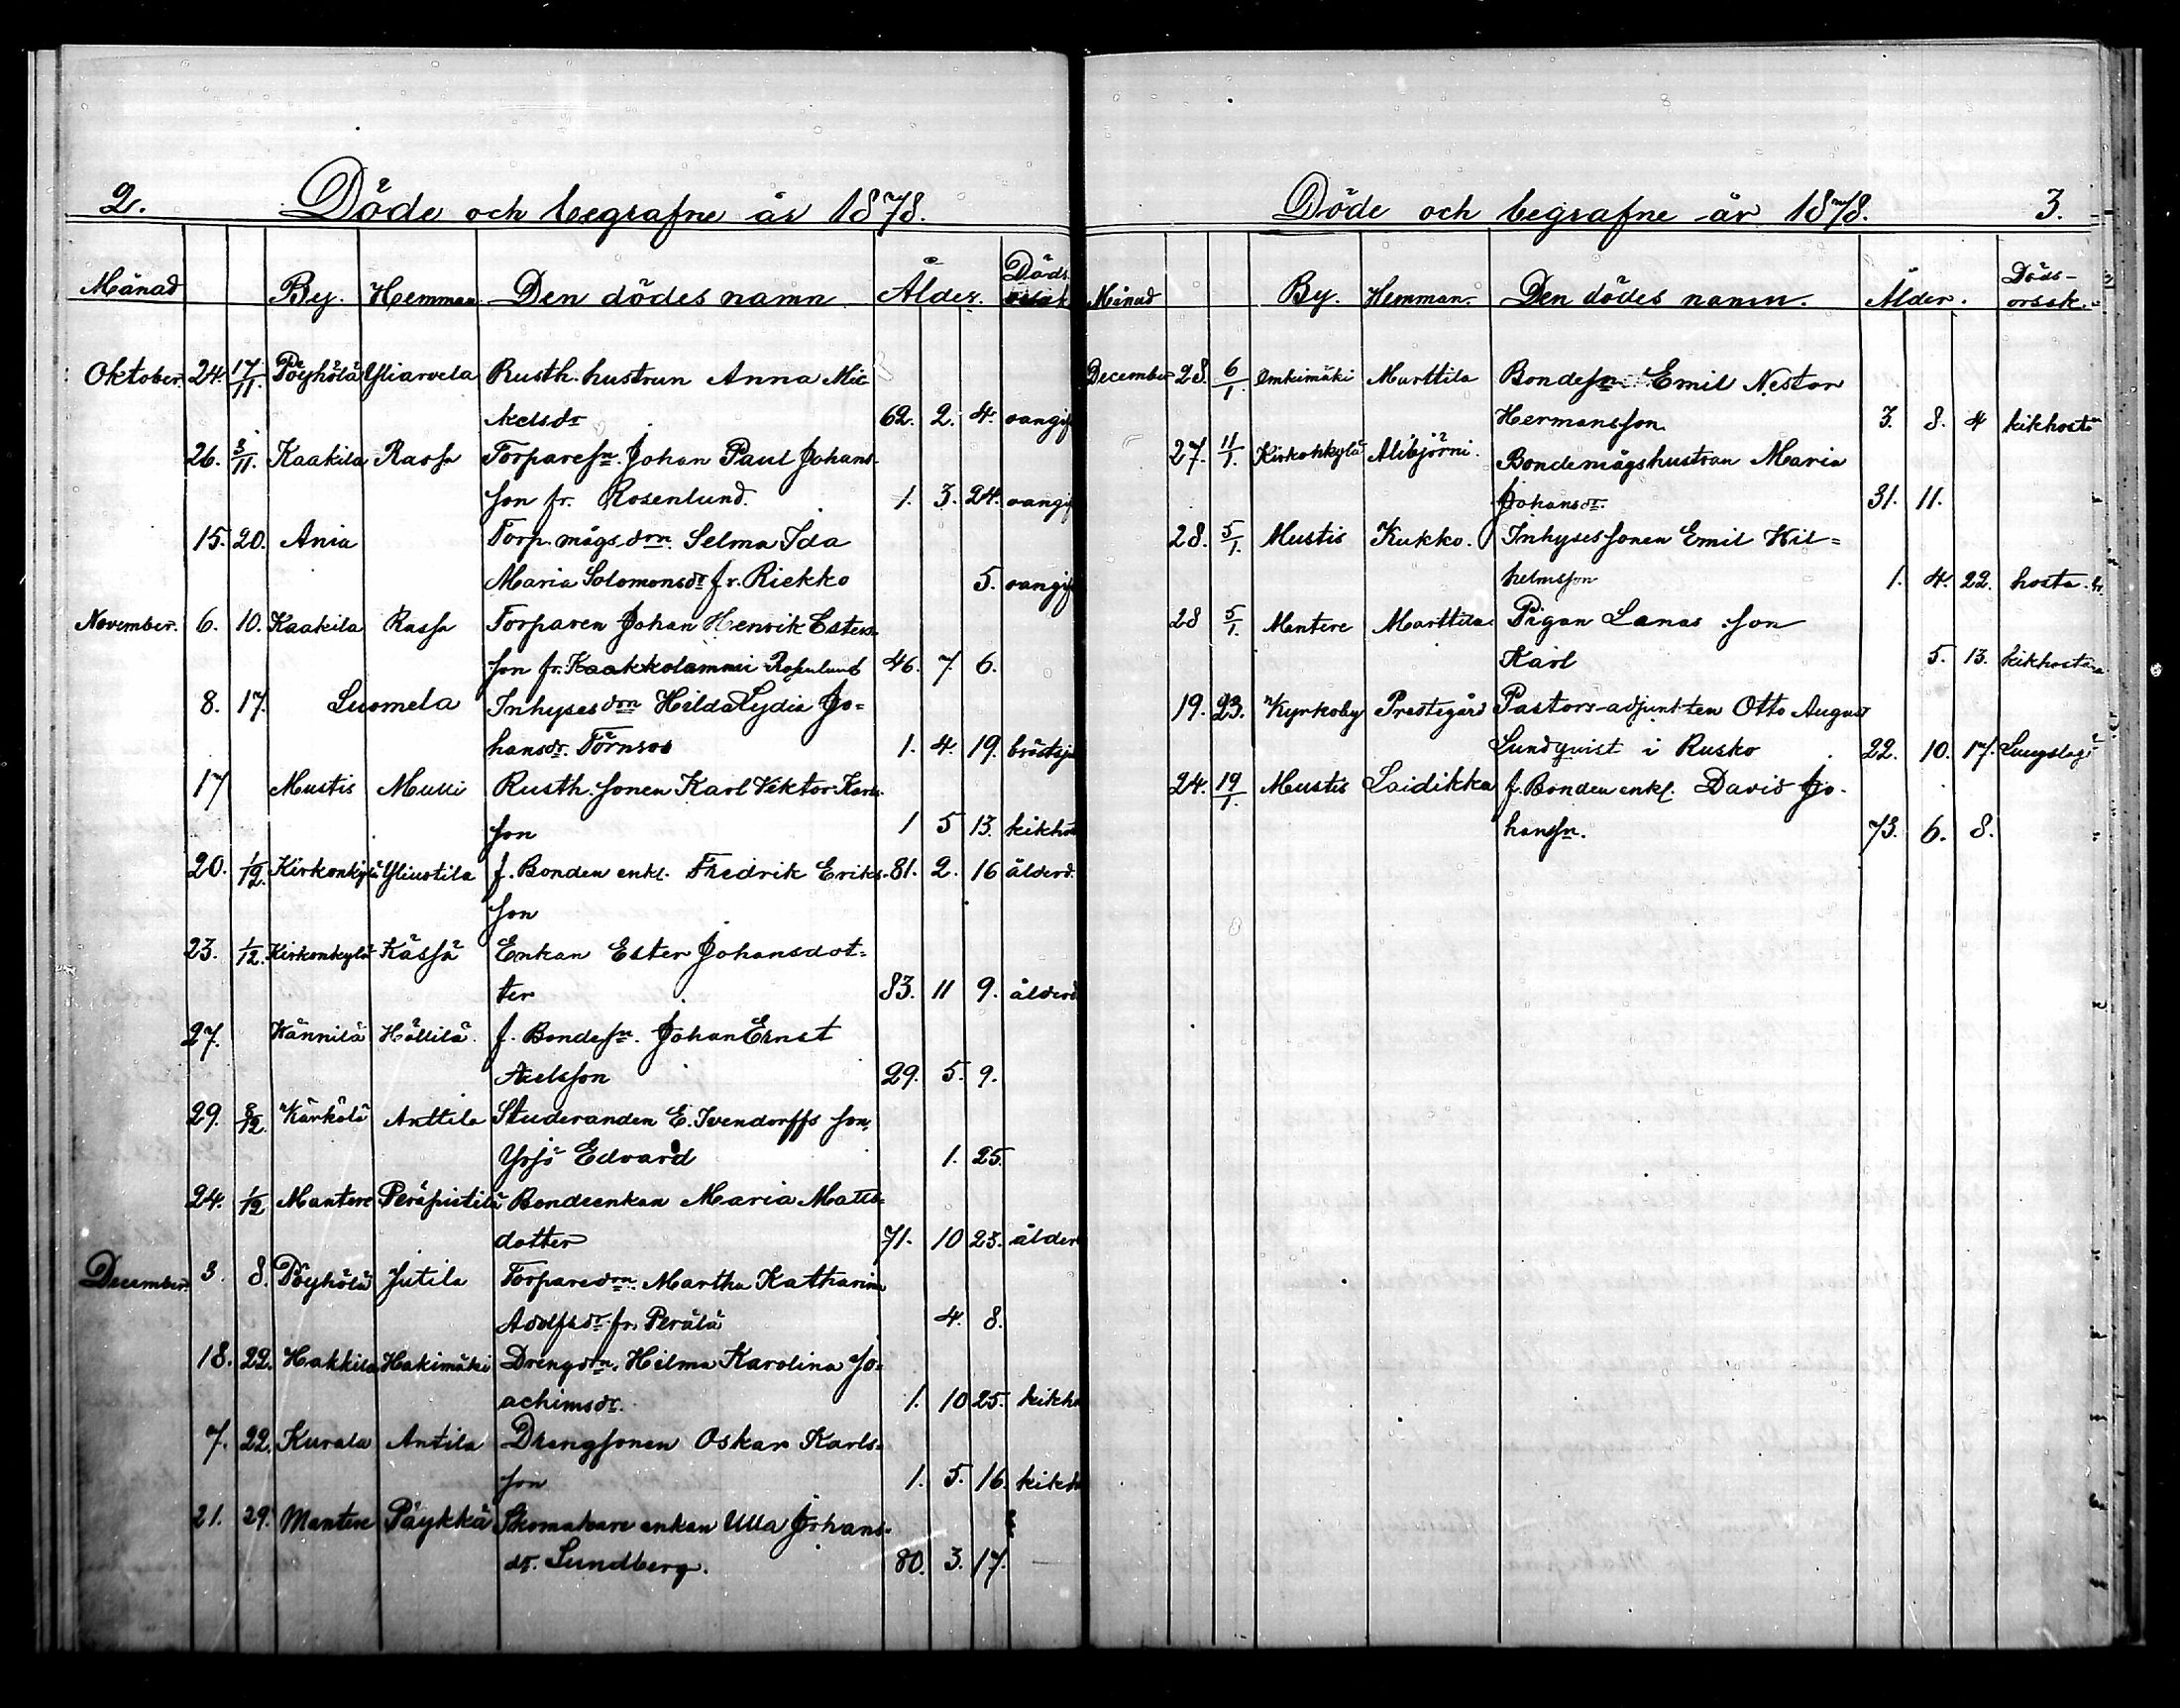 2. Döde och begrafne år 1878.
Månad By. Hemman. Den dödes namn Ålder. Döds
orsak
Oktober. 24. 17/11. Pöyhölä Yliarvela Rusth. hustrun Anna Mic
kelsdr 62. 2. 4. oangif
26. 3/11. Kaakila Rassa Torparesn. Johan Paul Johans-
son fr. Rosenlund. 1. 3. 24. oangif
15. 20. Ania Torp. mågs drn. Selma Ida
Maria Solomonsdr fr. Riekko 5. oangif
November. 6. 10. Kaakila Rassa Torparen Johan Henrik Esters
son fr. Kaakkolammi Rosenlund 46. 7 6.
8. 17. Luomela Inhyses drn Hilda Lydia Jo=
hansdr. Törnroos 1. 4. 19. bröstsju
17 Mustis Mulli Rusth. sonen Karl Viktor Karls-
son 1 5 13. kikhos
20. 1/12. Kirkonkylä Yliustila f. Bonden enkl. Fredrik Eriks- 81. 2. 16 ålderd.
son
23. 1/12. Kirkonkylä Kässä Enkan Ester Johansdot=
ter 83. 11 9. ålderd
27. Kännilä Hällilä f. Bondesn. Johan Ernst
Axelsson 29. 5. 9.
29. 8/12. Kärkölä Anttila Studeranden E. Ivendorffs son,
Yrjö Edvard 1. 25.
24. 1/12 Mantere Peräpietilä Bondeenkan Maria Matts=
dotter 71. 10 23. ålder
December. 3. 8. Pöyhölä Jutila Torparedrn. Martha Katharina
Adolfsdr. fr. Perälä 4. 8.
18. 22. Hakkila Hakimäki Drengdrn. Hilma Karolina Jo=
achimsdr. 1. 10 25. kikho
7. 22. Kurala Antila Drengsonen Oskar Karls=
son 1. 5. 16. kikho
21. 29. Mantere Päykkä Skomakare enkan Ulla Johans-
dr. Sundberg. 80. 3. 17.
Döde och begrafne år 1878. 3.
Månad By. Hemman. Den dödes namn. Ålder. Döds-
orsak.
December 28. 6/1. Marttila Bondesn. Emil Nestor
Hermansson. 3. 8. 4 kikhosta
27. 11/1. Kirkohkylä Alibjörni. Bondemågshustrun Maria
Johansdr. 31. 11.
28. 5/1. Mustis Kukko. Inhysessonen Emil Wil=
helmsson 1. 4. 22. hosta.
28 5/1. Mantere Marttila Pigan Lenas son
Karl 5. 13. kikhosta
19. 23. Kyrkoby Prestegård Pastors-adjunkten Otto August
Lundqvist i Rusko 22. 10. 17. Lungslag
24. 19/1. Mustis Laidikka f. Bonden enkl. David Jo-
hanssn. 73. 6. 8.